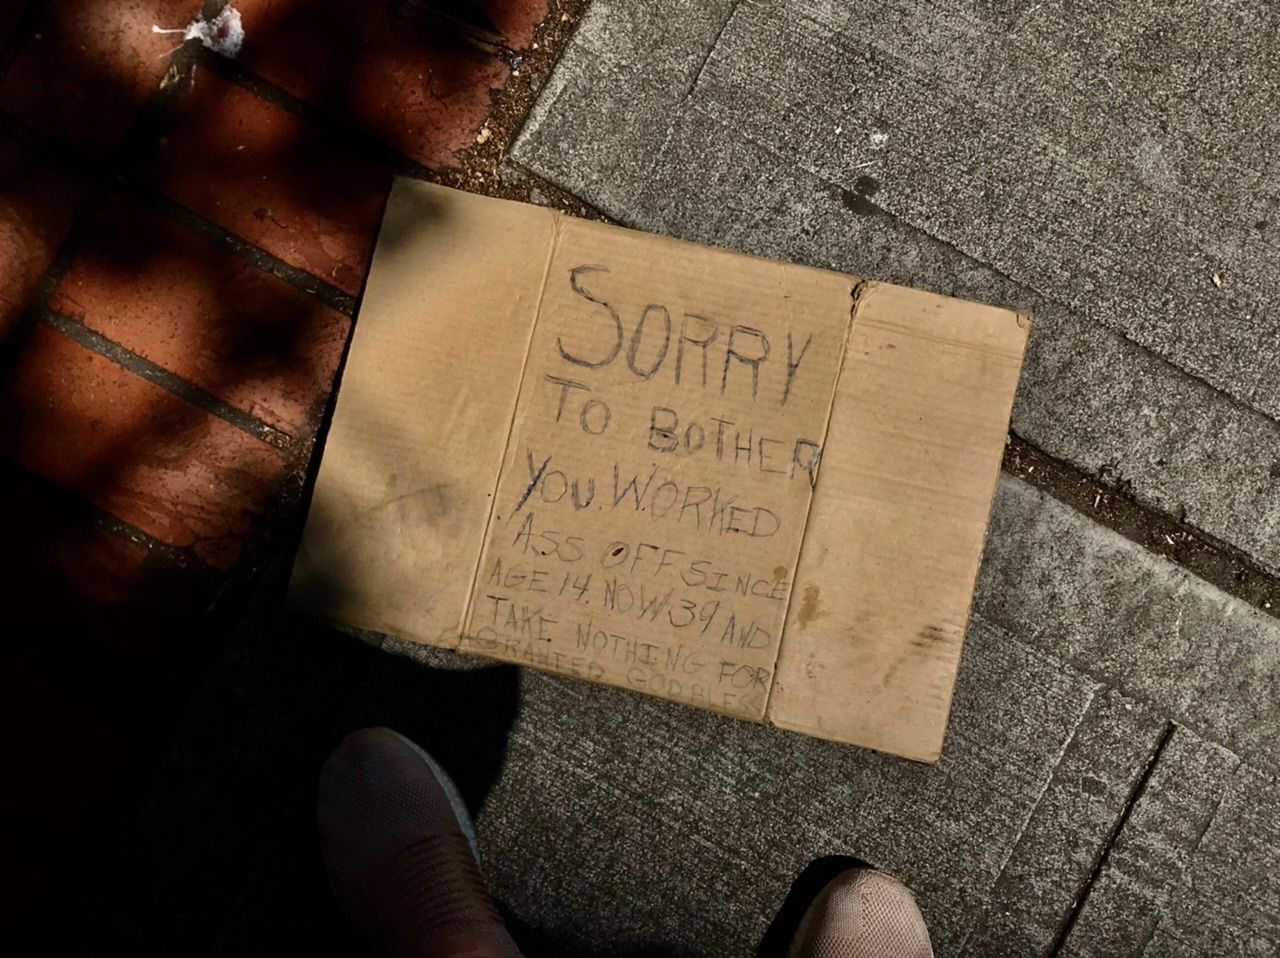 SORRY
TO BOTHER
YOU. WORKED
ASS OFF SINCE
AGE 14. NOW 39 AND
TAKE NOTHING FOR
GRANTED GOD BLESS